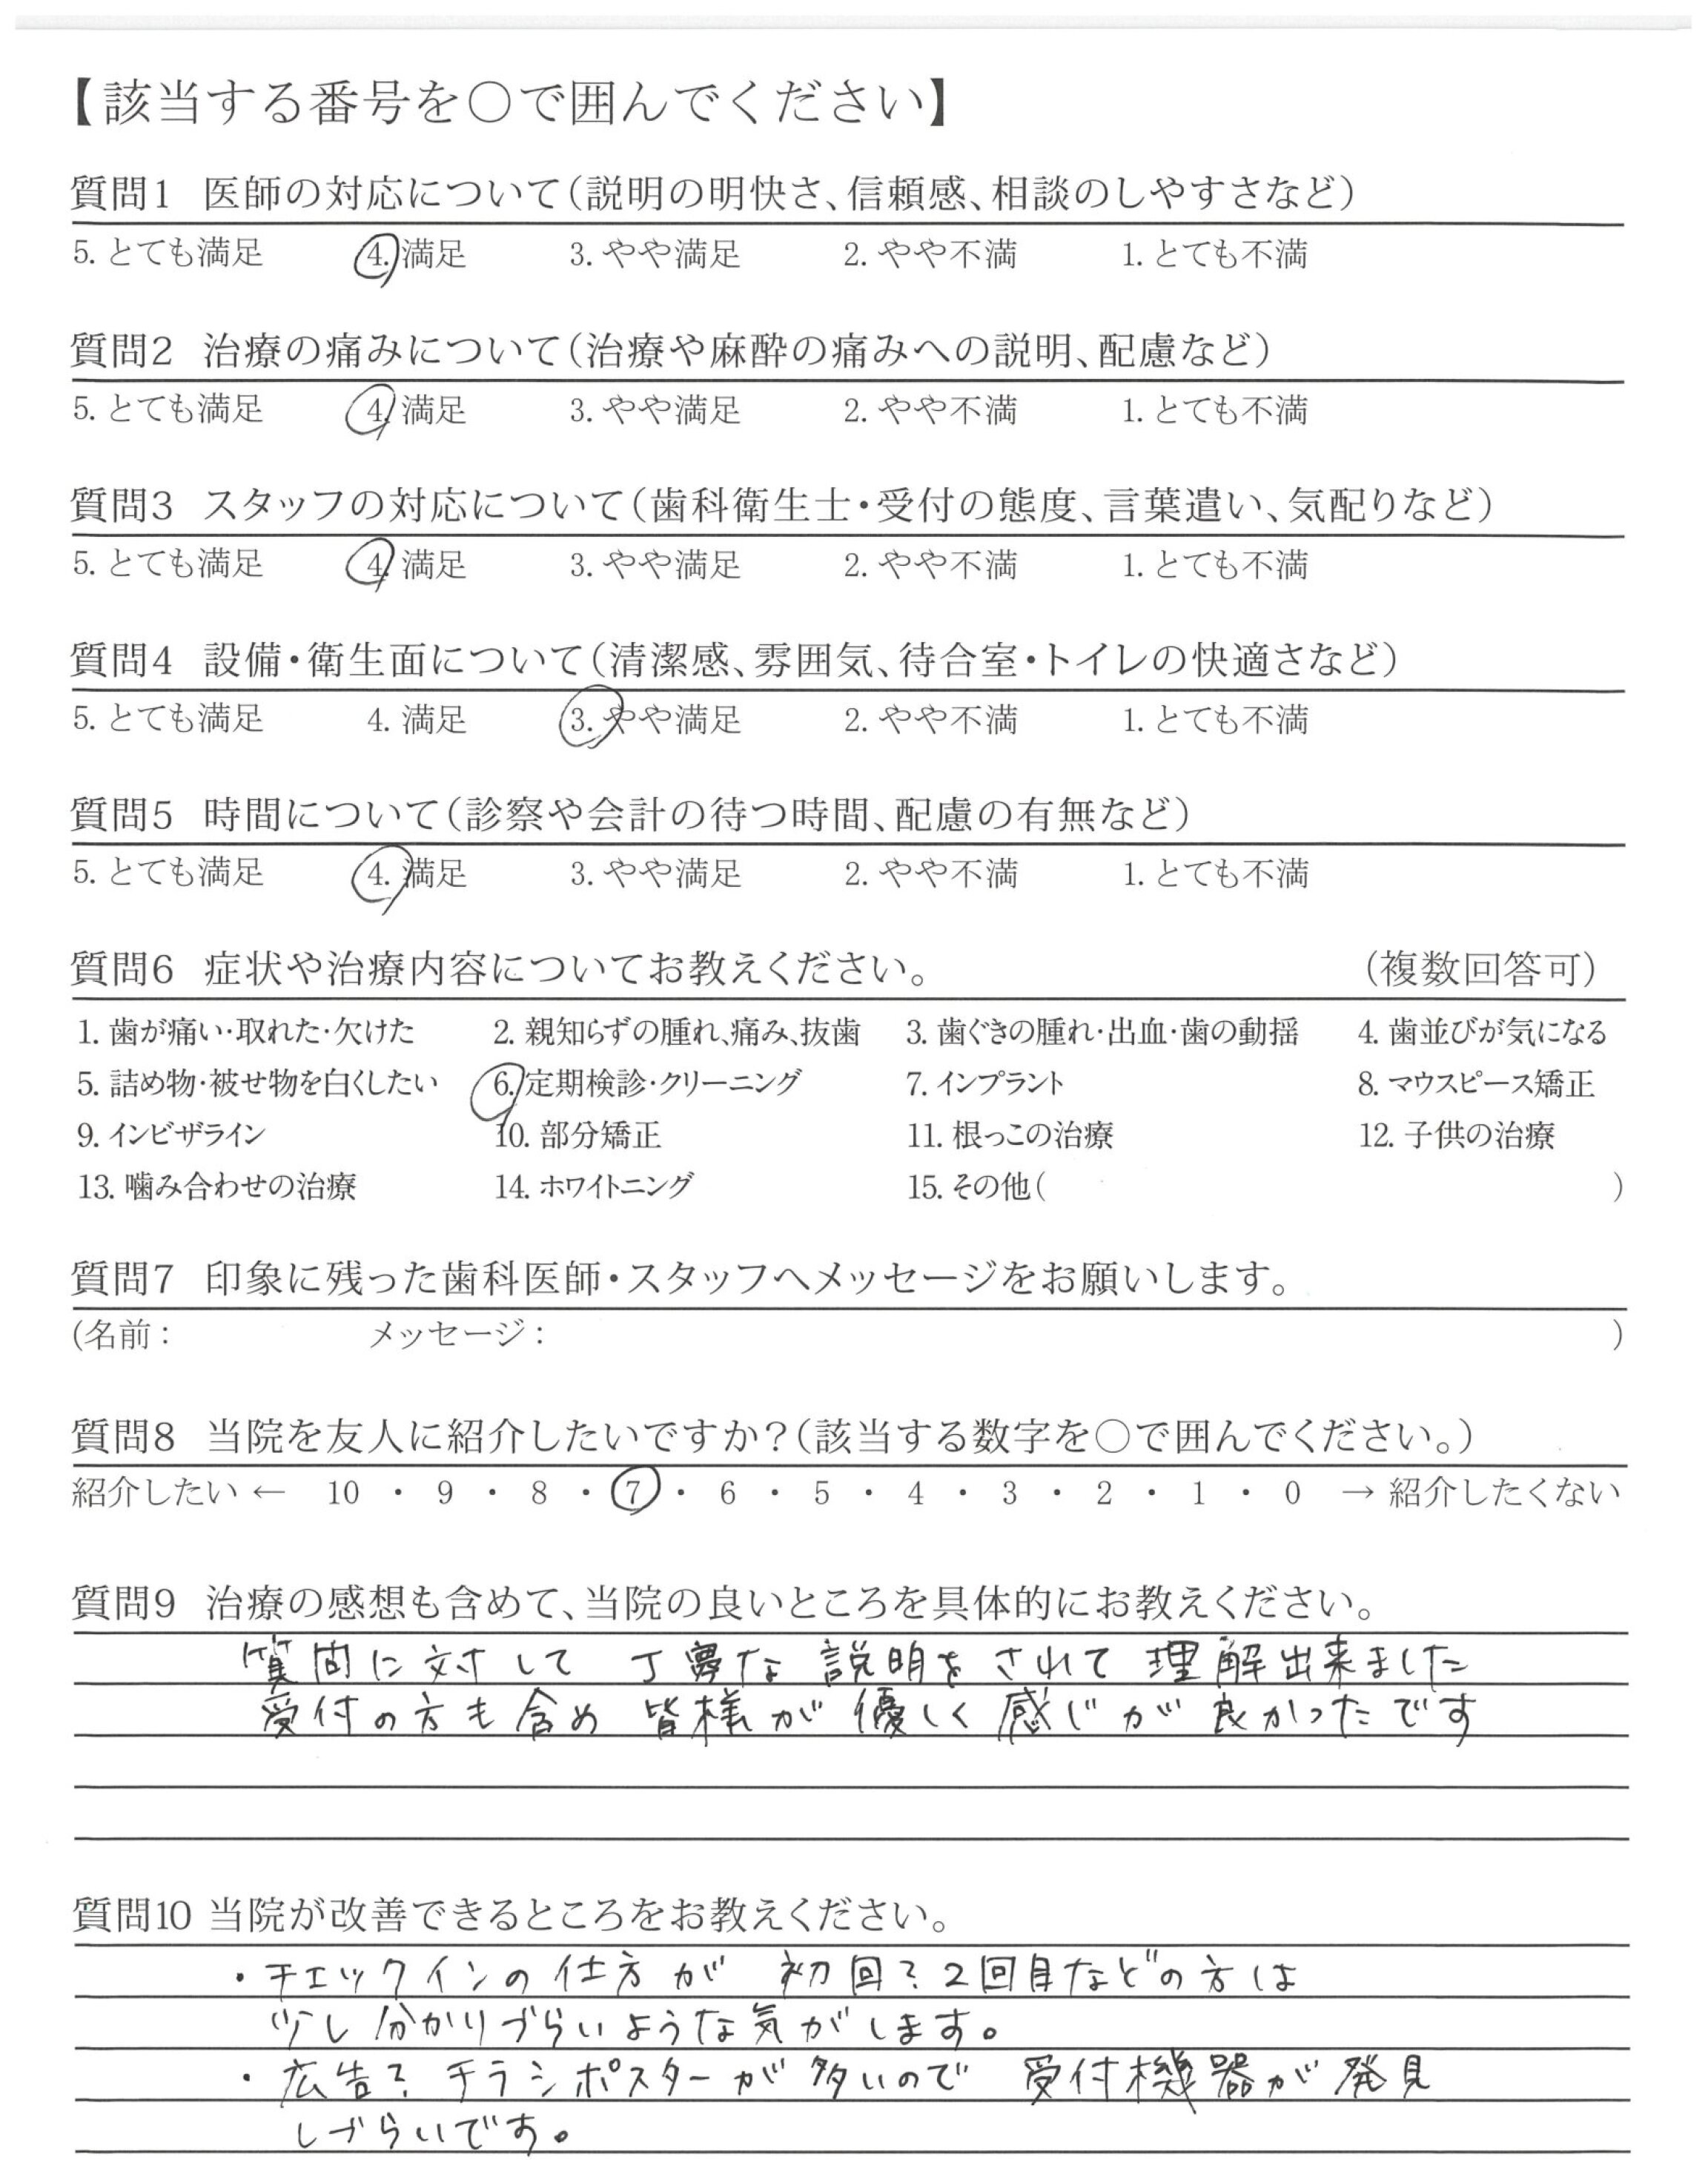 【該当する番号を〇で囲んでください】
質問1 医師の対応について(説明の明快さ、信頼感、相談のしやすさなど)
5. とても満足 4. 満足 3. やや満足 2. やや不満 1. とても不満
質問2 治療の痛みについて(治療や麻酔の痛みへの説明、配慮など)
5. とても満足 4. 満足 3. やや満足 2. やや不満 1. とても不満
質問3 スタッフの対応について(歯科衛生士・受付の態度、言葉遣い、気配りなど)
5. とても満足 4. 満足 3. やや満足 2. やや不満 1. とても不満
質問4 設備・衛生面について(清潔感、雰囲気、待合室・トイレの快適さなど)
5. とても満足 4. 満足 3. やや満足 2. やや不満 1. とても不満
質問5 時間について(診察や会計の待つ時間、配慮の有無など)
5. とても満足 4. 満足 3. やや満足 2. やや不満 1. とても不満
質問6 症状や治療内容についてお教えください。 (複数回答可)
1. 歯が痛い・取れた・欠けた 2. 親知らずの腫れ、痛み、抜歯 3. 歯ぐきの腫れ・出血・歯の動揺 4. 歯並びが気になる
5. 詰め物・被せ物を白くしたい 6. 定期検診・クリーニング 7. インプラント 8. マウスピース矯正
9. インビザライン 10. 部分矯正 11. 根っこの治療 12. 子供の治療
13. 噛み合わせの治療 14. ホワイトニング 15. その他( )
質問7 印象に残った歯科医師・スタッフへメッセージをお願いします。
(名前: メッセージ: )
質問8 当院を友人に紹介したいですか?(該当する数字を〇で囲んでください。)
紹介したい ← 10 ・ 9 ・ 8 ・ 7 ・ 6 ・ 5 ・ 4 ・ 3 ・ 2 ・ 1 ・ 0 → 紹介したくない
質問9 治療の感想も含めて、当院の良いところを具体的にお教えください。
質問に対して 丁寧な 説明をされて 理解出来ました
受付の方も含め 皆様が優しく感じが良かったです
質問10 当院が改善できるところをお教えください。
・チェックインの仕方が 初回?2回目などの方は
少し分かりづらいような気がします。
・広告? チラシポスターが多いので 受付機器が発見
しづらいです。